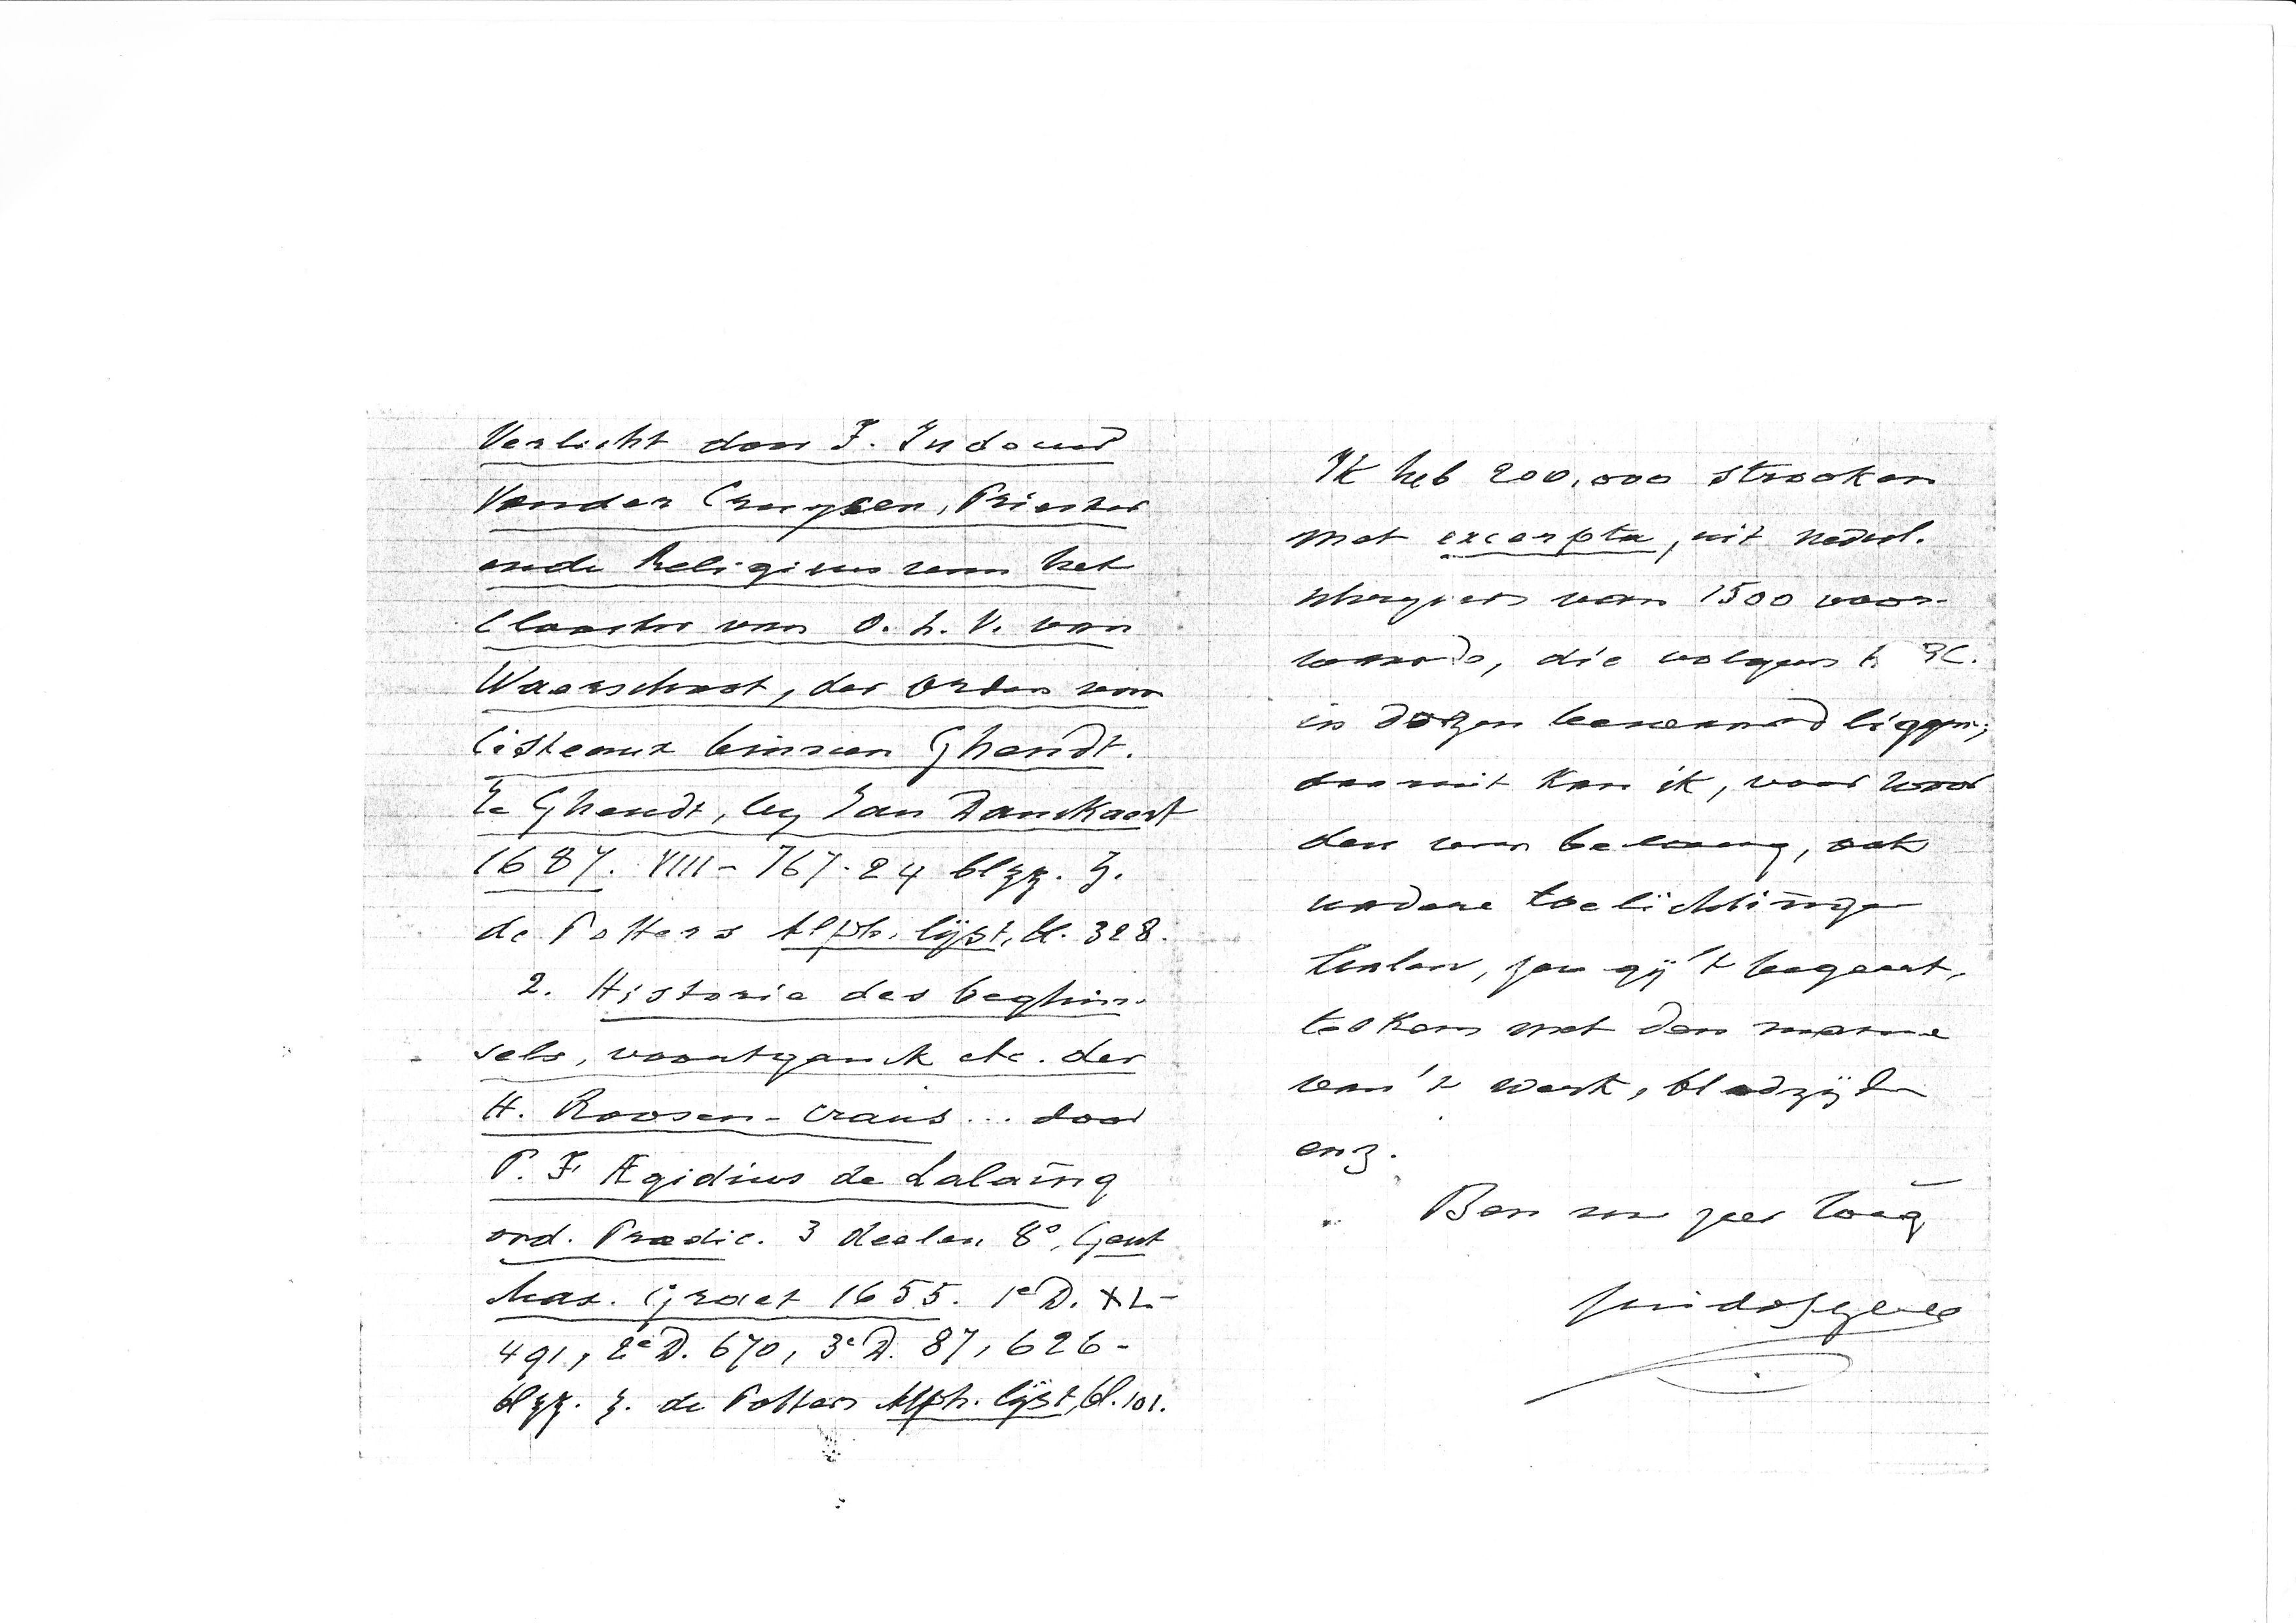 Verlicht door F. Judocus
Vander Cruyssen, Priester
ende Religieus van het
Clooster van O. L. V. van
Waerschoot, der Orden van
Cisteaux binnen Ghendt.
Te Ghendt, by Jan Danckaert
1687. VIII - 767-24 blzz. Z.
de Potters Alph. lijst, bl. 328.
2. Historie des beghin-
sels, voortganck etc. der
H. Roosen-crans ... door
P. F Ægidius de Lalaing
ord. Prædic. 3 deelen 8°, Gent
Max. Graet 1655. 1e D. XL-
491, 2e D. 670, 3e D. 87, 626-
blzz. Z. de Potters Alph. lijst, bl. 101.
Ik heb 200,000 strooken
met excerpta, uit nederl.
schryvers van 1500 voor-
waards, die volgens BC.
in dozen bewaard liggen;
daaruit kan ik, voor woor
den van belang, ook
verdere toelichtingen
tinlen, zou gij 't begeert,
teekens met den name
van 't werk, bladzijde
enz.
Ben me zeer toeg
Guido Gezelle